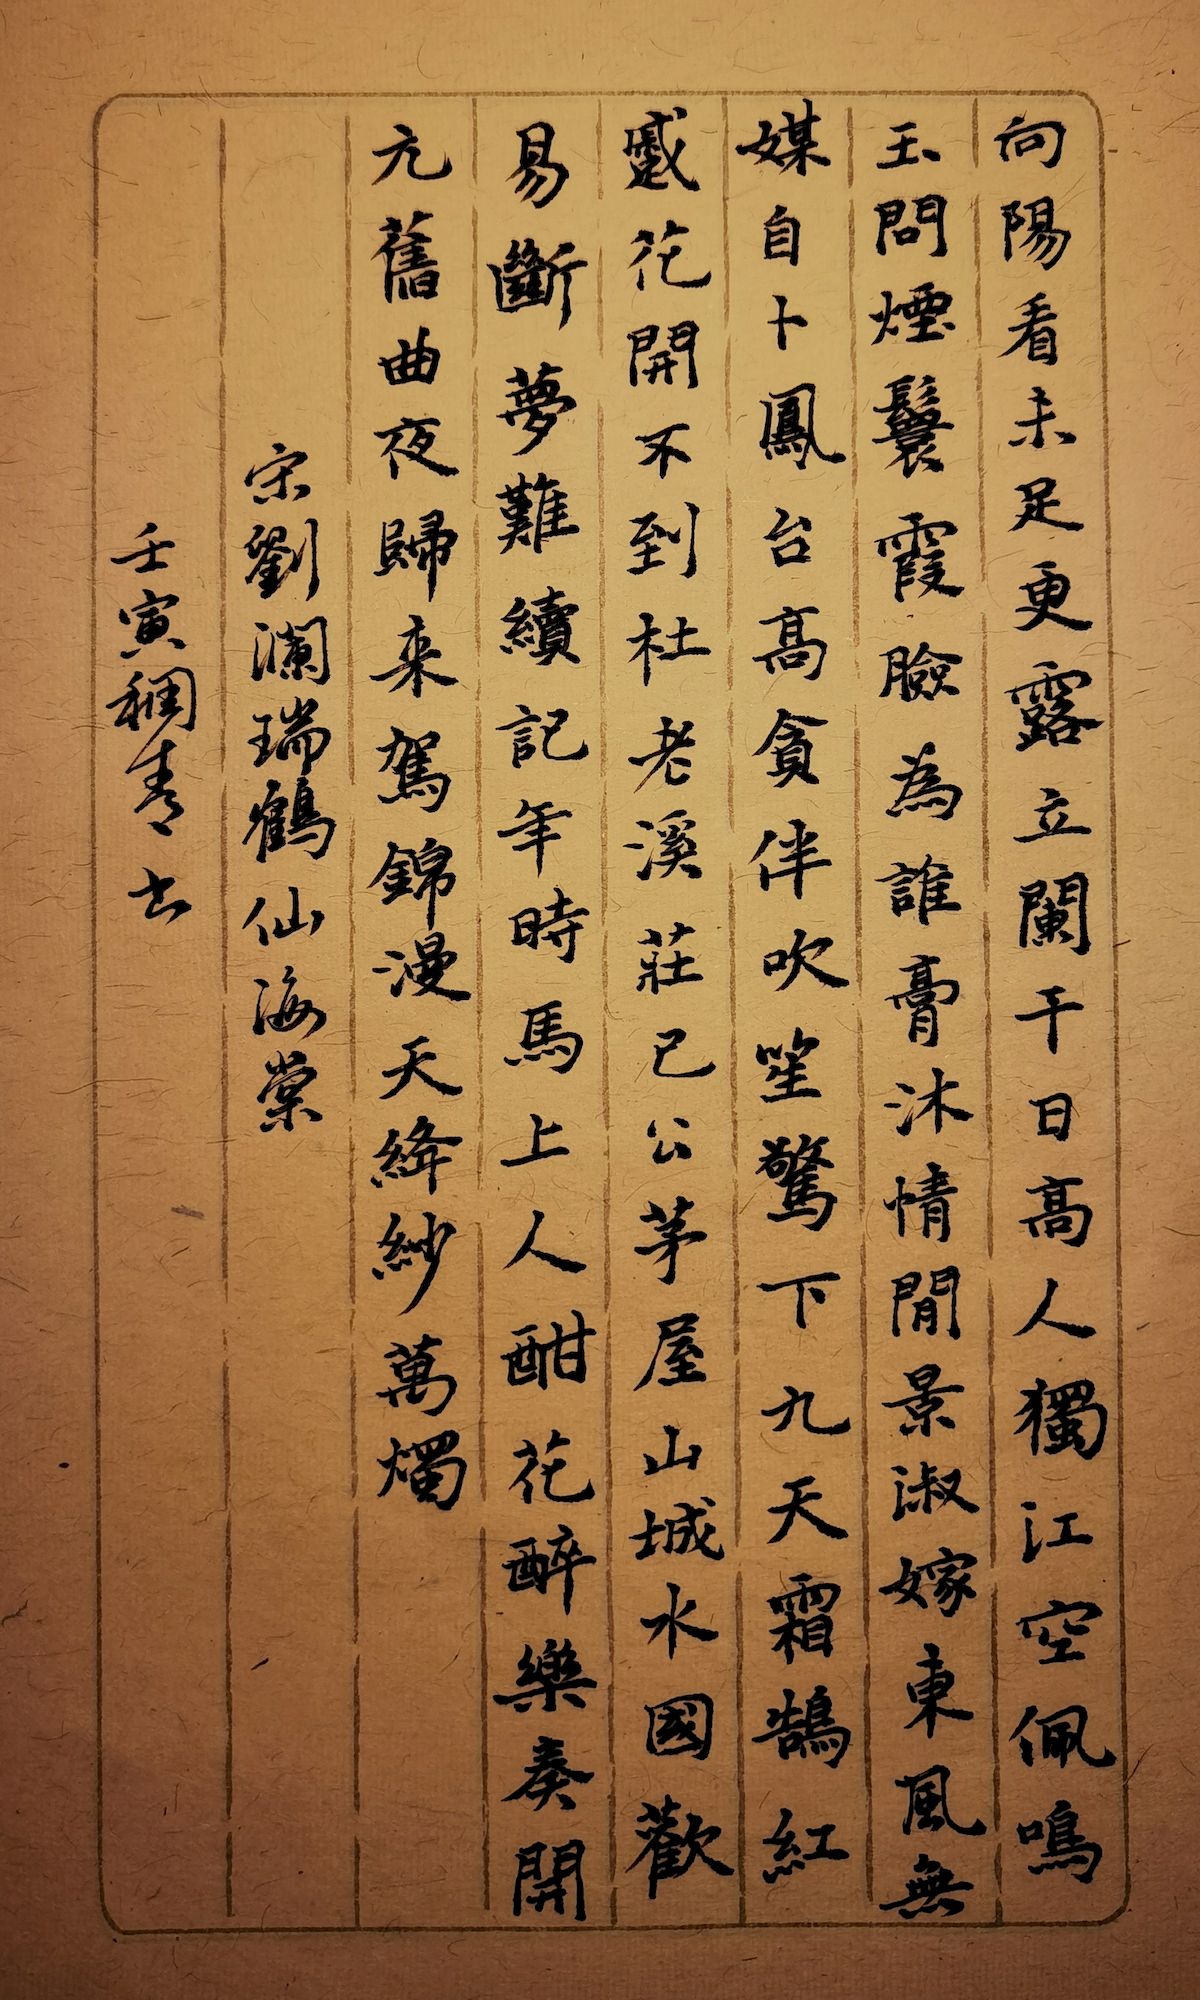 向陽看未足更露立闌干日高人獨江空佩鳴
玉問煙鬟霞臉為誰膏沐情閒景淑嫁東風無
媒自卜鳳台高貪伴吹笙驚下九天霜鵠紅
蹙花開不到杜老溪莊已公茅屋山城水國歡
易斷夢難續記年時馬上人酣花醉樂奏開
元舊曲夜歸来駕錦漫天絳紗萬燭
宋劉瀾瑞鶴仙海棠
壬寅稠青书